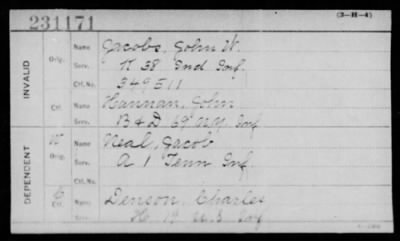 231171
(3-H-4)
INVALID
Orig. Name Jacobs, John W.
Serv. K 38 Ind Inf.
Ctf. No. 349511
Ctf. Name Hannan, John
Serv. B & D 69 N.Y. Inf
DEPENDENT
W Orig. Name Neal, Jacob
Serv. A 1 Tenn Inf.
Ctf. No.
C Ctf. Name Denson, Charles
Serv. H 19 U.S Inf